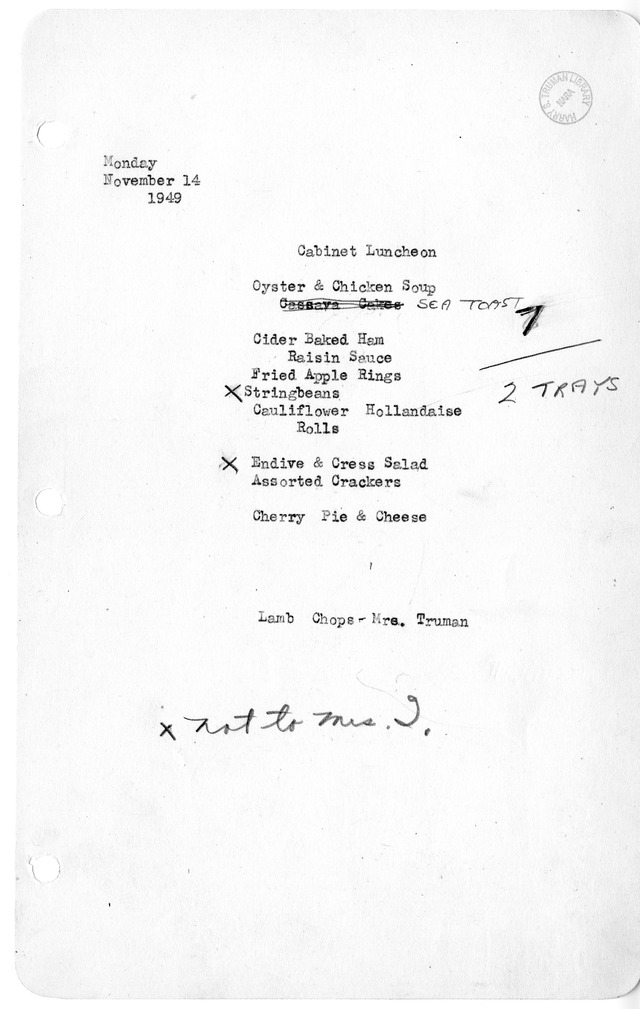 HARRY S. TRUMAN LIBRARY
NARA
Monday
November 14
1949
Cabinet Luncheon
Oyster & Chicken Soup
Cassava Cakes SEA TOAST
7
Cider Baked Ham
Raisin Sauce
Fried Apple Rings
X Stringbeans
2 TRAYS
Cauliflower Hollandaise
Rolls
X Endive & Cress Salad
Assorted Crackers
Cherry Pie & Cheese
Lamb Chops- Mrs. Truman
x not to Mrs. T.